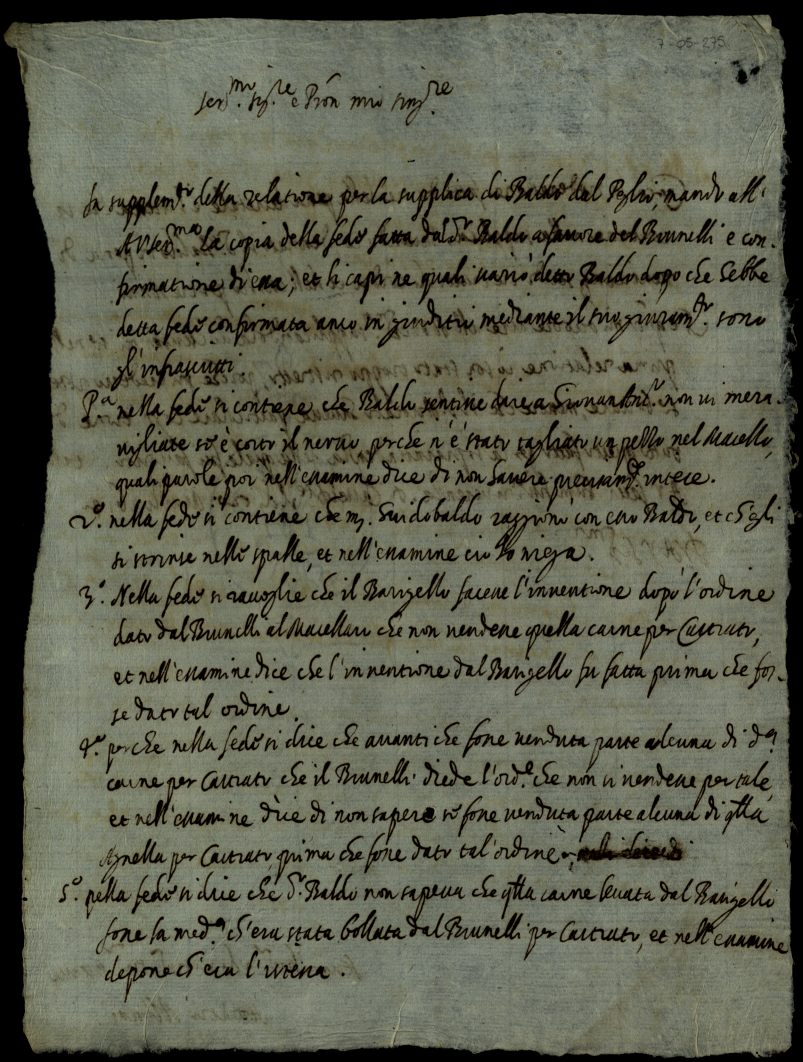 7-05-275
Ser.mo Sig.re e Pron mio sing.re
In supplem.to della relatione per la supplica di Baldo del Poglio, mando all'
AV Ser.ma la copia della fede fatta dal d.o Baldo a favore del Brunelli e con-
firmatione di essa; et li capi ne quali variò detto Baldo dopo che hebbe
detta fede confirmata anco in giuditio mediante il suo giuram.to sono
gl'infrascritti.
P.a nella fede si contiene che Baldo sentine dare a Giovan Ant.o non vi mera-
vigliate se è corto il nervo, perche n'è stato tagliato un pezzo nel Macello,
quali parole poi nell'essamine dice di non havere precisam.te intese.
2.o nella fede si contiene che m. Guidobaldo raggionò con esso Baldo, et ch'egli
si strinse nelle spalle, et nell'essamine ciò lo niega.
3.o Nella fede si raccoglie che il Barigello facesse l'inventione dopò l'ordine
dato dal Brunelli al Macellaro che non vendesse quella carne per Castrato,
et nell'essamine dice che l'inventione dal Barigello fu fatta prima che fos-
se dato tal ordine.
4.o perche nella fede si dice che avanti che fosse venduta parte alcuna di d.a
carne per Castrato che il Brunelli diede l'ord.e che non si vendesse per tale,
et nell'essamine dice di non sapere se fosse venduta parte alcuna di q.lla
Agnella per Castrato, prima che fosse dato tal'ordine
5.o nella fede si dice che d.o Baldo non sapeva che q.lla carne levata dal Barigello
fosse la med.a ch'era stata bollata dal Brunelli per Castrato, et nell'essamine
depone ch'era l'istessa.